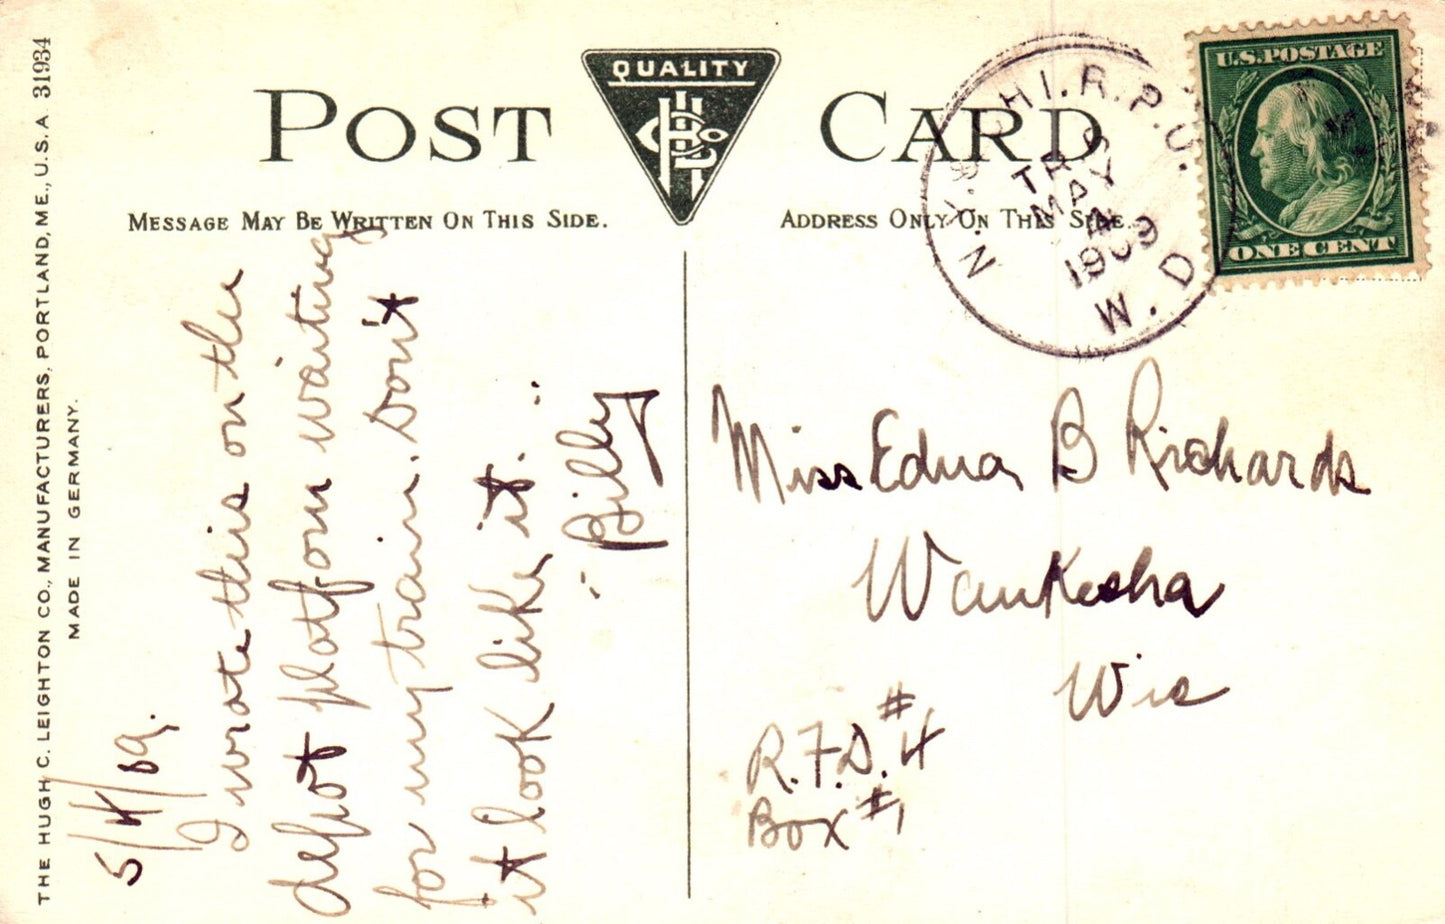 THE HUGH C. LEIGHTON CO., MANUFACTURERS, PORTLAND, ME., U.S.A. 31934
MADE IN GERMANY.
POST CARD
QUALITY
HCL Co
MESSAGE MAY BE WRITTEN ON THIS SIDE.
ADDRESS ONLY ON THIS SIDE.
N.Y. & CHI. R.P.O.
TR
MAY
4
1909
W.D.
U.S.POSTAGE
ONE CENT
5/4/09.
I wrote this on the
depot platform waiting
for my train. Don't
it look like it.
"Billy"
Miss Edna B Richards
Waukesha
Wis
R.F.D. #4
Box #1